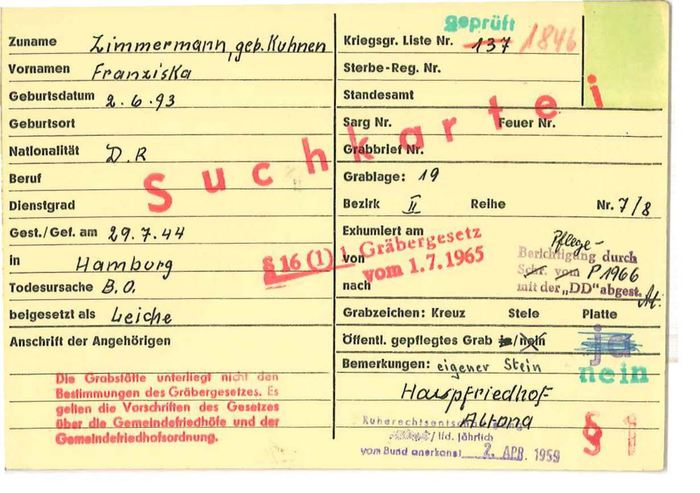 geprüft
Zuname Zimmermann, geb. Kuhnen
Vornamen Franziska
Geburtsdatum 2.6.93
Geburtsort
Nationalität D.R
Beruf
Dienstgrad
Gest./Gef. am 29.7.44
in Hamburg
Todesursache B.O.
beigesetzt als Leiche
Anschrift der Angehörigen
Die Grabstätte unterliegt nicht den
Bestimmungen des Gräbergesetzes. Es
gelten die Vorschriften des Gesetzes
über die Gemeindefriedhöfe und der
Gemeindefriedhofsordnung.
Suchkartei
§ 16 (1) 1 Gräbergesetz
vom 1.7.1965
Kriegsgr. Liste Nr. 137 1846
Sterbe-Reg. Nr.
Standesamt
Sarg Nr. Feuer Nr.
Grabbrief Nr.
Grablage: 19
Bezirk II Reihe Nr. 7/8
Exhumiert am
von
nach
Pflege-
Berichtigung durch
Schr. vom P 1966
mit der „DD" abgest.
Grabzeichen: Kreuz Stele Platte
Öffentl. gepflegtes Grab ja/nein
ja
nein
Bemerkungen: eigener Stein
Haupfriedhof
Altona
§ 1
lfd. jährlich
vom Bund anerkannt 2. APR. 1959